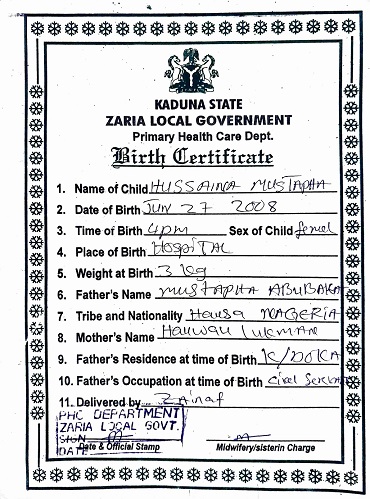 KADUNA STATE
ZARIA LOCAL GOVERNMENT
Primary Health Care Dept.
Birth Certificate
1. Name of Child HUSSAINA MUSTAPHA
2. Date of Birth JUN 27 2008
3. Time of Birth 4pm Sex of Child femal
4. Place of Birth HOSPITAL
5. Weight at Birth 3 kg
6. Father's Name MUSTAPHA ABUBAKA
7. Tribe and Nationality Hausa NAGERIA
8. Mother's Name Hauwau LUKMAN
9. Father's Residence at time of Birth K/DOKA
10. Father's Occupation at time of Birth
11. Delivered by Zainaf
PHC DEPARTMENT
ZARIA LOCAL GOVT.
SIGN
DATE
Date & Official Stamp Midwifery/sisterin Charge